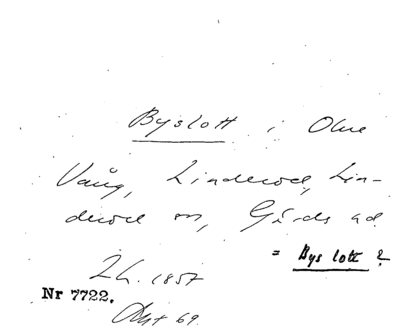 Byslott i Olne
Vång, Linderod, Lin-
derod sn, Gärds hd.
= Bys lott?
Lh. 1857
Nr 7722.
Okt 69.